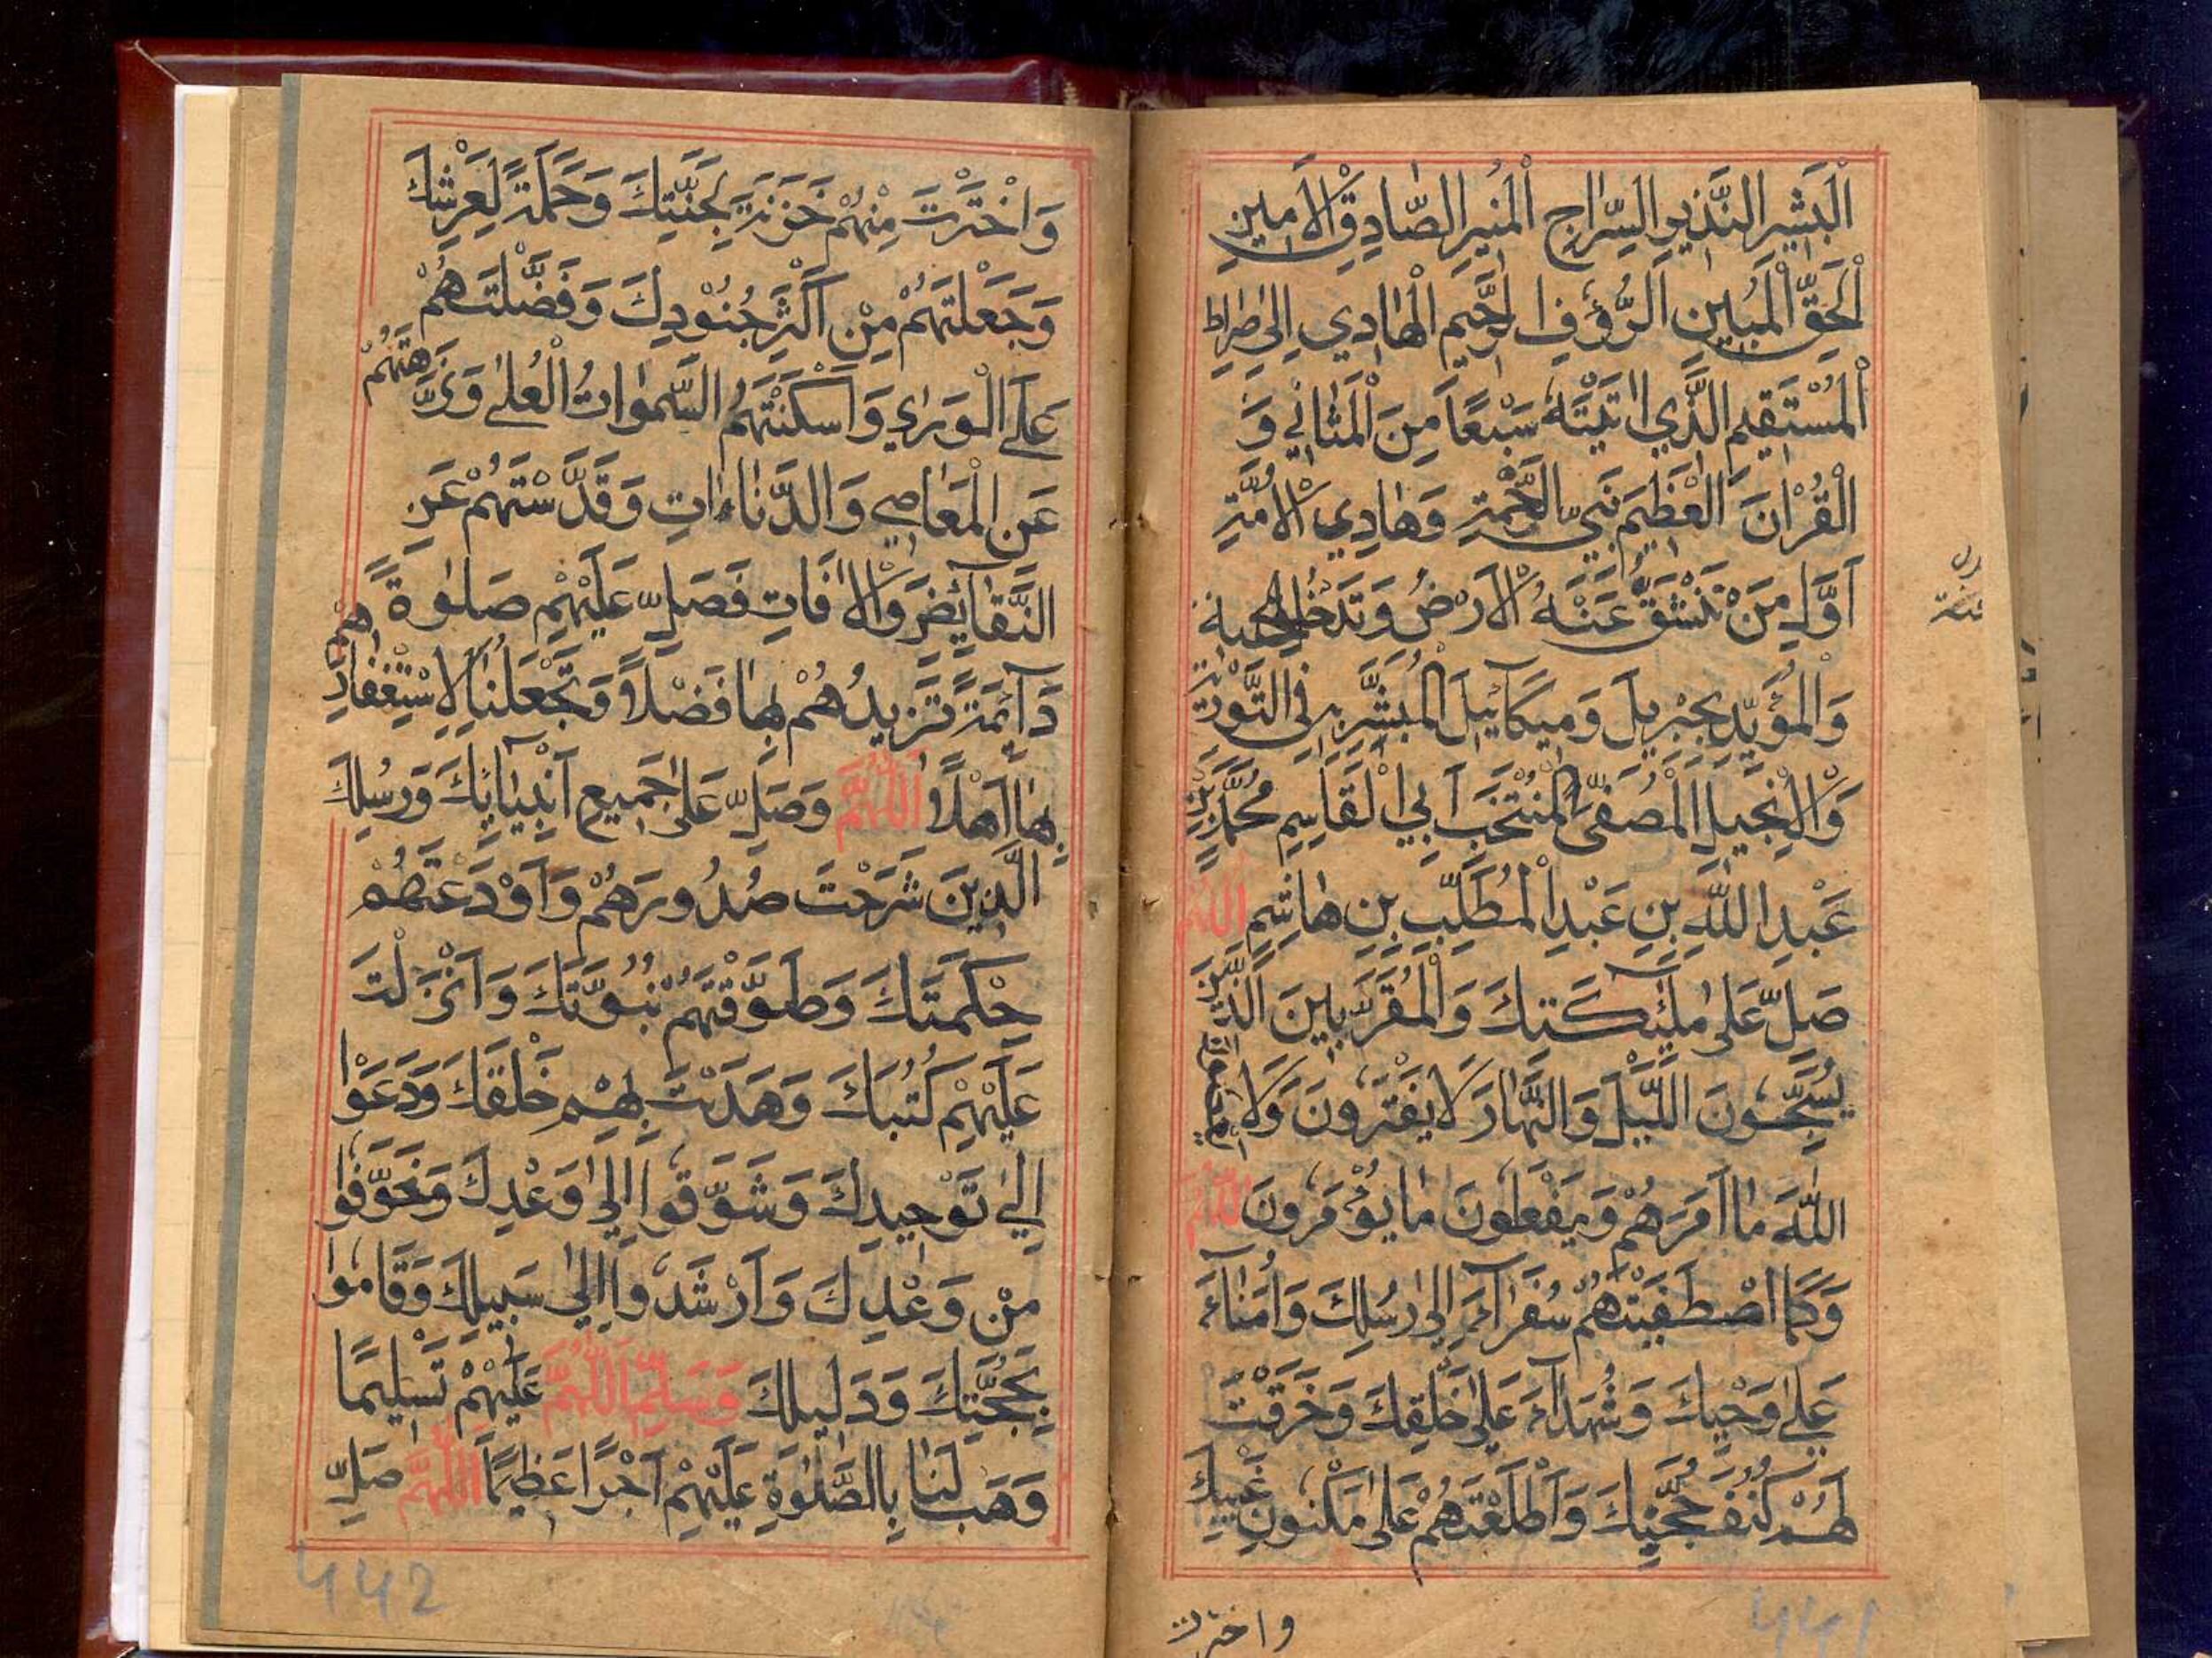 اَلْبَشِيرِ النَّذِيرِ السِّرَاجِ الْمُنِيرِ الصَّادِقِ الْاَمِينِ
الْحَقِّ الْمُبِينِ الرَّؤُفِ الرَّحِيمِ الْهَادِي اِلٰى صِرَاطِ
الْمُسْتَقِيمِ الَّذِي اٰتَيْتَهُ سَبْعًا مِنَ الْمَثَانِي وَ
الْقُرْاٰنَ الْعَظِيمَ نَبِيِّ الرَّحْمَةِ وَهَادِي الْاُمَّةِ
اَوَّلِ مَنْ تَنْشَقُّ عَنْهُ الْاَرْضُ وَتَدْخُلُ الْجَنَّةَ
وَالْمُؤَيَّدِ بِجِبْرِيلَ وَمِيكَآئِيلَ الْمُبَشَّرِ بِهِ فِي التَّوْرٰىةِ
وَالْاِنْجِيلِ الْمُصْطَفَى الْمُنْتَخَبِ اَبِي الْقَاسِمِ مُحَمَّدِ بْنِ
عَبْدِ اللّٰهِ بْنِ عَبْدِ الْمُطَّلِبِ بْنِ هَاشِمٍ اَللّٰهُمَّ
صَلِّ عَلٰى مَلٰٓئِكَتِكَ وَالْمُقَرَّبِينَ الَّذِينَ
يُسَبِّحُونَ اللَّيْلَ وَالنَّهَارَ لَا يَفْتَرُونَ وَلَا يَعْصُونَ
اللّٰهَ مَا اَمَرَهُمْ وَيَفْعَلُونَ مَا يُؤْمَرُونَ اَللّٰهُمَّ
وَكَمَا اصْطَفَيْتَهُمْ سُفَرَآءَ اِلٰى رُسُلِكَ وَاُمَنَآءَ
عَلٰى وَحْيِكَ وَشُهَدَآءَ عَلٰى خَلْقِكَ وَخَرَقْتَ
لَهُمْ كُنُفَ حُجُبِكَ وَاَطْلَعْتَهُمْ عَلٰى مَكْنُونِ غَيْبِكَ
واخترت
441
وَاخْتَرْتَ مِنْهُمْ خَزَنَةً لِجَنَّتِكَ وَحَمَلَةً لِعَرْشِكَ
وَجَعَلْتَهُمْ مِنْ اَكْثَرِ جُنُوْدِكَ وَفَضَّلْتَهُمْ
عَلَى الْوَرٰى وَاَسْكَنْتَهُمُ السَّمٰوَاتُ الْعُلٰى وَنَزَّهْتَهُمْ
عَنِ الْمَعَاصِي وَالدَّنَاءَاتِ وَقَدَّسْتَهُمْ عَنِ
النَّقَآئِضِ وَالْاٰفَاتِ فَصَلِّ عَلَيْهِمْ صَلٰوةً
دَآئِمَةً تَزِيدُهُمْ بِهَا فَضْلًا وَتَجْعَلُنَا لِاسْتِغْفَارِهِمْ
بِهَا اَهْلًا اَللّٰهُمَّ وَصَلِّ عَلٰى جَمِيعِ اَنْبِيَائِكَ وَرُسُلِكَ
الَّذِينَ شَرَحْتَ صُدُورَهُمْ وَاَوْدَعْتَهُمْ
حِكْمَتَكَ وَطَوَّقْتَهُمْ نُبُوَّتَكَ وَاَنْزَلْتَ
عَلَيْهِمْ كُتُبَكَ وَهَدَيْتَ بِهِمْ خَلْقَكَ وَدَعَوْا
اِلٰى تَوْحِيدِكَ وَشَوَّقُوا اِلٰى وَعْدِكَ وَخَوَّفُوا
مِنْ وَعْدِكَ وَاَرْشَدُوا اِلٰى سَبِيلِكَ وَقَامُوا
بِحُجَّتِكَ وَدَلِيلِكَ وَسَلِّمِ اللّٰهُمَّ عَلَيْهِمْ تَسْلِيمًا
وَهَبْ لَنَا بِالصَّلٰوةِ عَلَيْهِمْ اَجْرًا عَظِيمًا اَللّٰهُمَّ صَلِّ
442